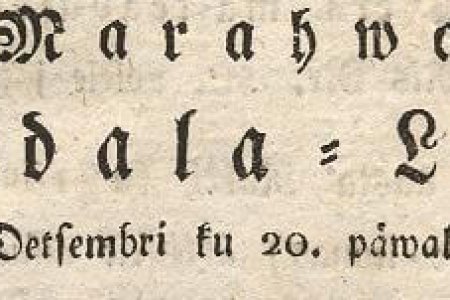 Marahwa
dala-L
Detsembri ku 20. päwal